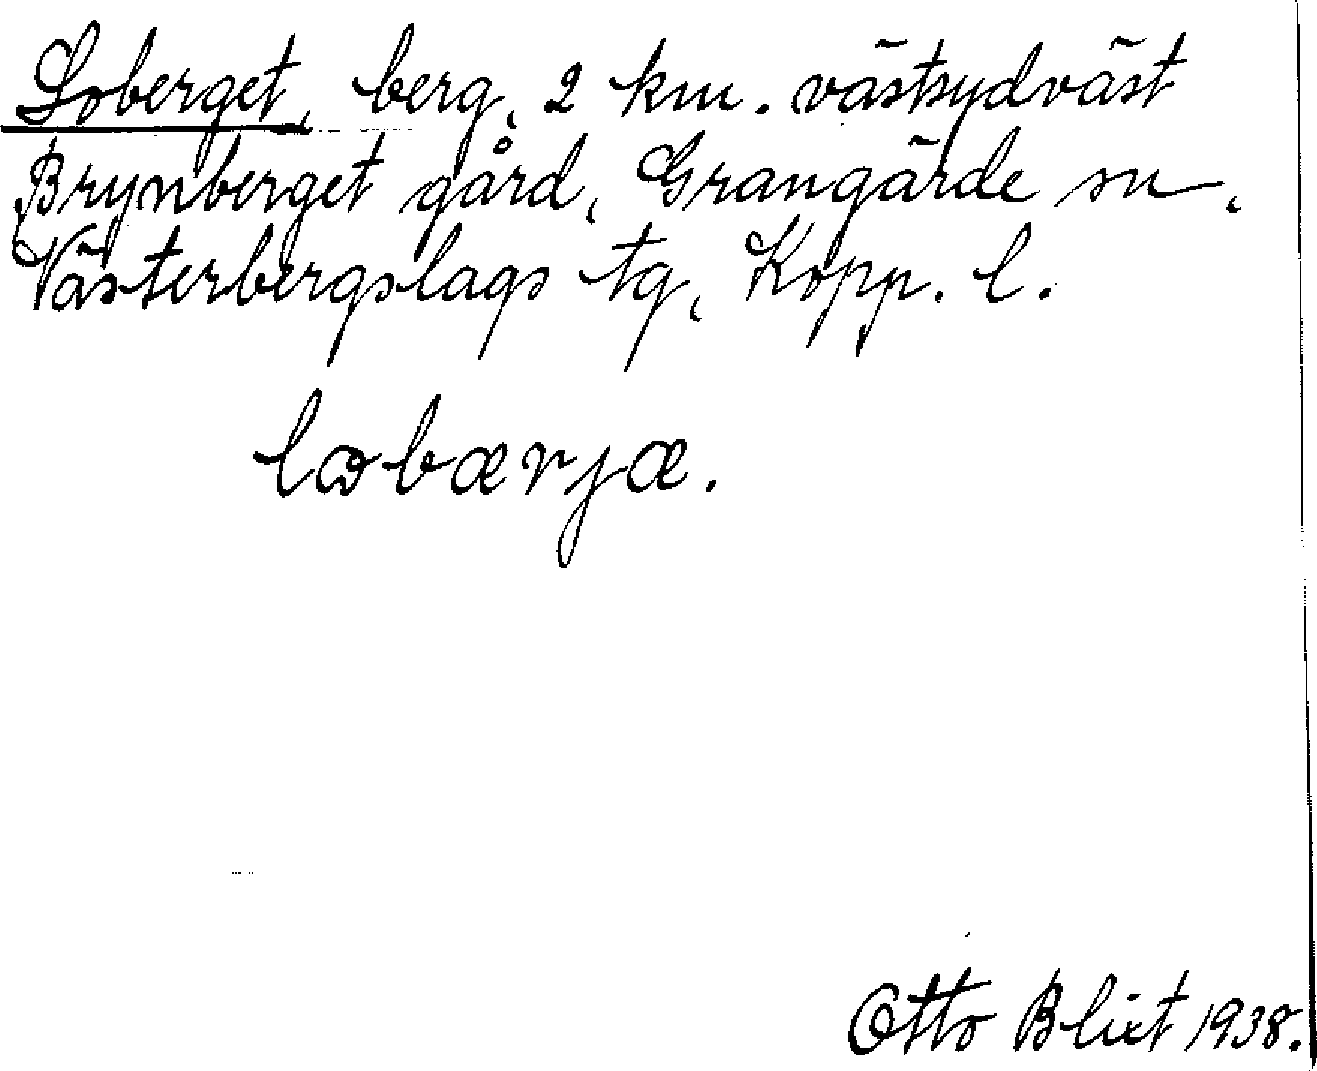 Loberget, berg, 2 km. västsydväst
Brynberget gård, Grangärde sn,
Västerbergslags tg, Kopp. l.
lɷbærjæ.
Otto Blixt 1938.